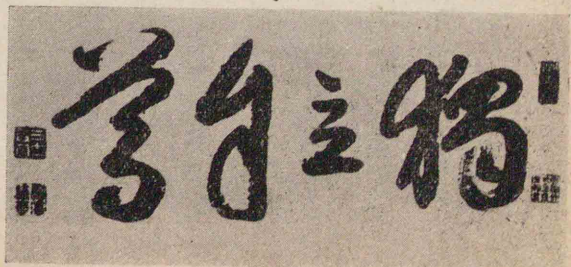 獨立自尊